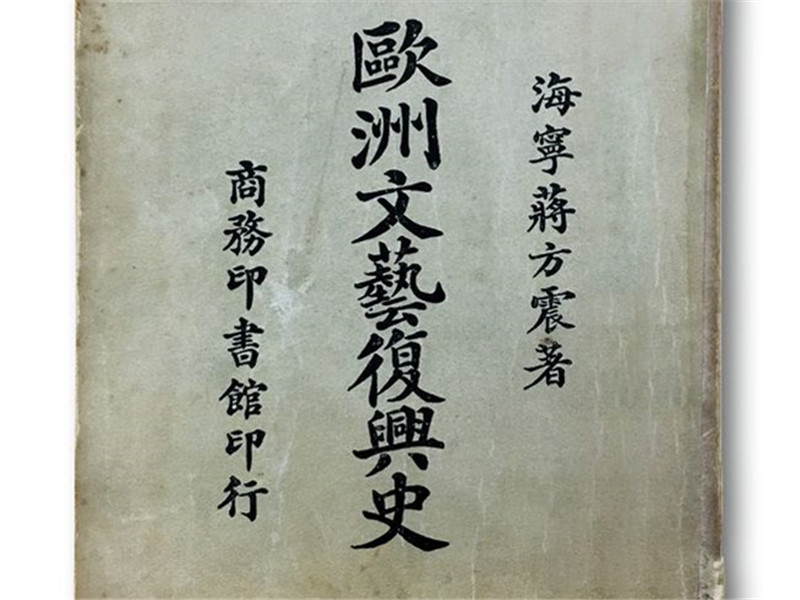 海寧蔣方震著
歐洲文藝復興史
商務印書館印行